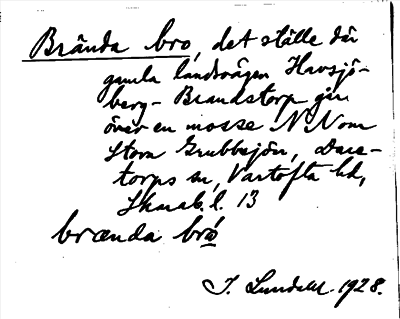 Brända bro, det ställe där
gamla landsvägen Havsjö-
berg - Brandstorp går
över en mosse N.N om
Stora Grubbsjön, Dare-
torps sn, Vartofta hd,
Skarab. l. 13
brænda brö
J. Lundahl. 1928.